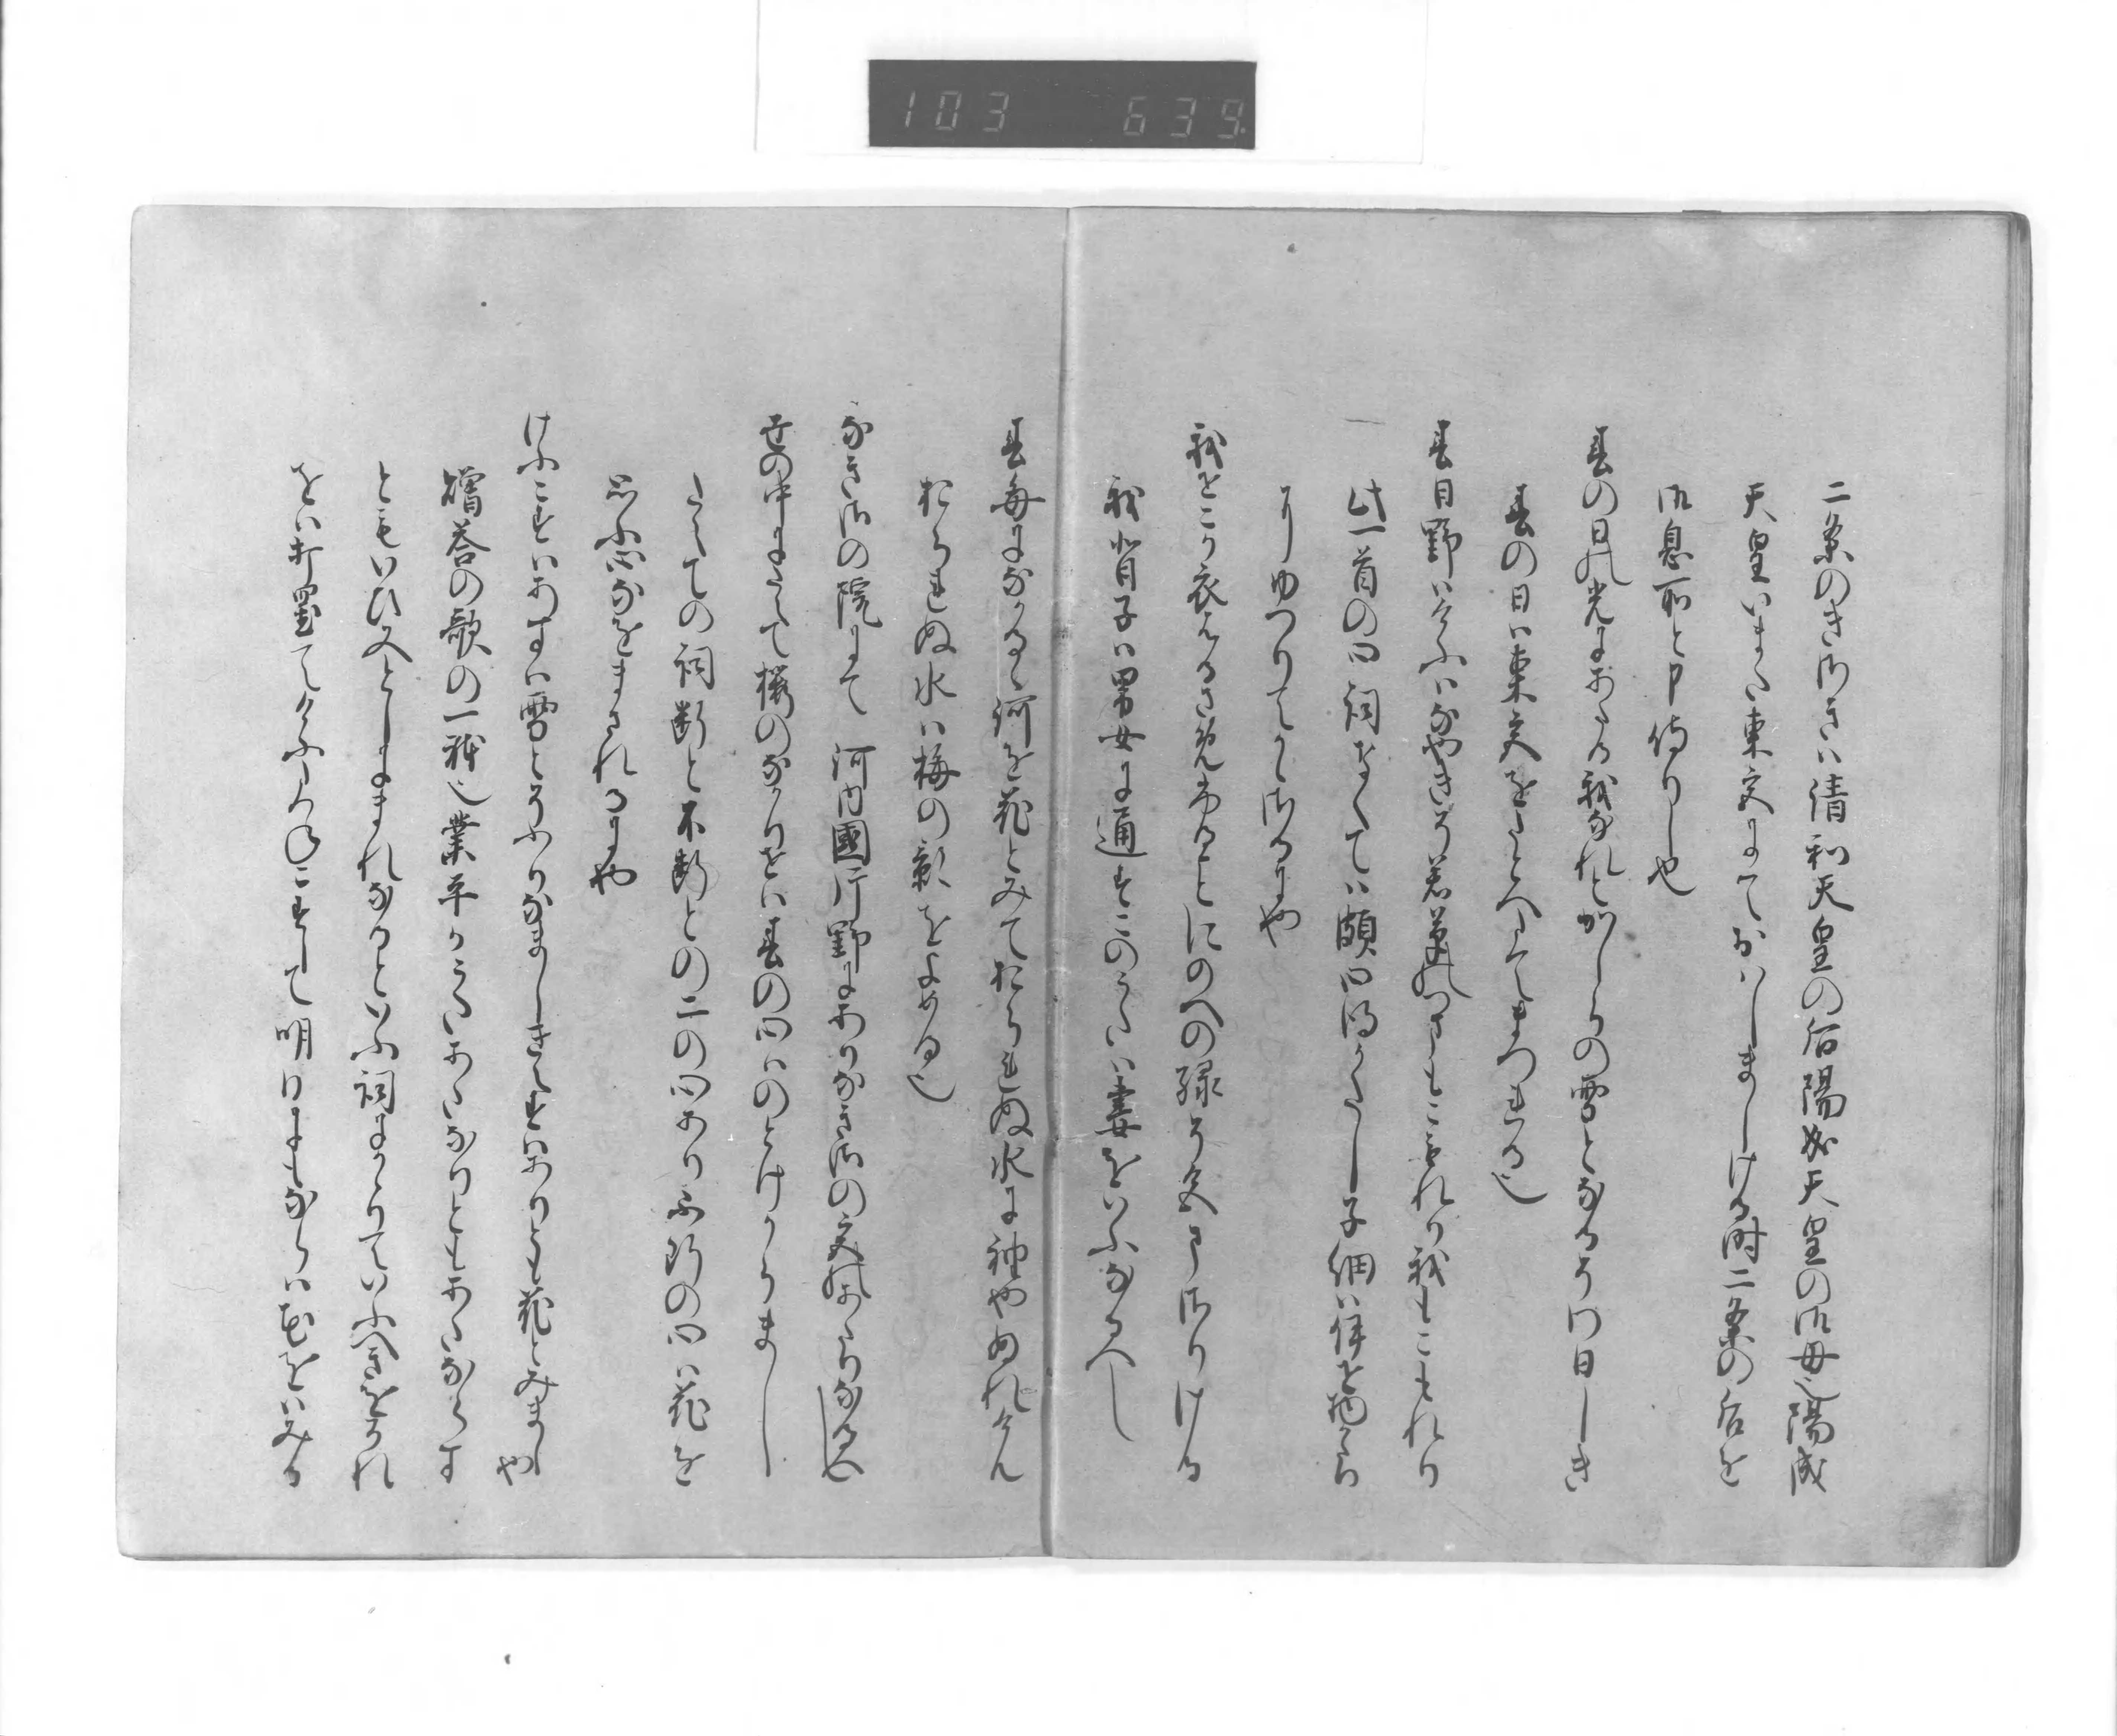 103 639
二条のきさきは清和天皇の后陽成天皇の御母也陽成
天皇いまた東宮にておはしましける時二条の后を
御息所と申侍りし也
春の日の光にあたる我なれとかしらの雪となるそわひしき
春の日は東宮をたとへたてまつれる也
春日野はけふはなやきそ若草のつまもこもれり我もこもれり
此一首の口詞なくては頗心得かたし子細は伊勢物語
にゆつりてかけるにや
我せこか衣はるさめふることにのへの緑そ色まさりける
我背子は男女に通せりこのうたは妻をいふなるへし
春毎になかるゝ河を花とみておられぬ水に袖やぬれけん
おられぬ水は梅の影をよめる也
なきさの院にて 河内国片野にありなきさの宮のあたりなるへし
世の中にたえて桜のなかりせは春の心はのとけからまし
たえての詞断と不断との二の心あり不断の心は花を
思ふ心なをまされるにや
けふこすはあすは雪とそふりなましきえすはありとも花とみましや
贈答の歌の一體也業平かうたはあたなりともあたならす
ともいひみとしにまれなるといふ詞にかゝりていふへきをそれ
をは打置てけふこすして明日にもならは花をはみる